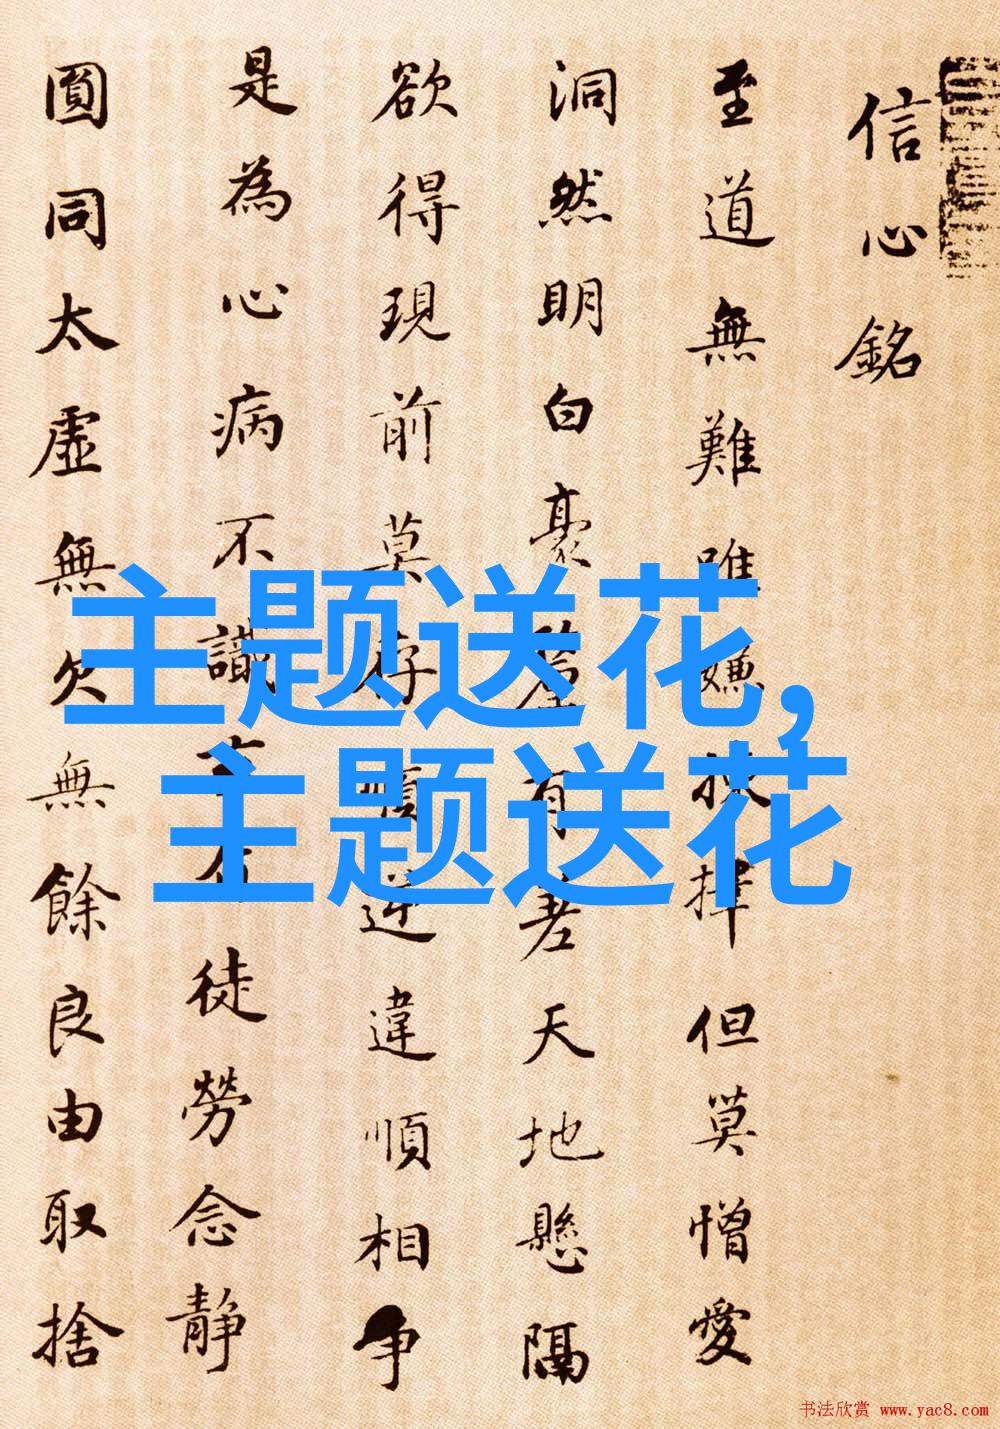 信心銘
至道無難唯嫌揀擇但莫憎愛
洞然明白豪釐有差天地懸隔
欲得現前莫存順逆違順相争
是為心病不識徒勞念静
圓同太虛無欠無餘良由取捨
主题送花,
主题送花
书法欣赏 www.yac8.com